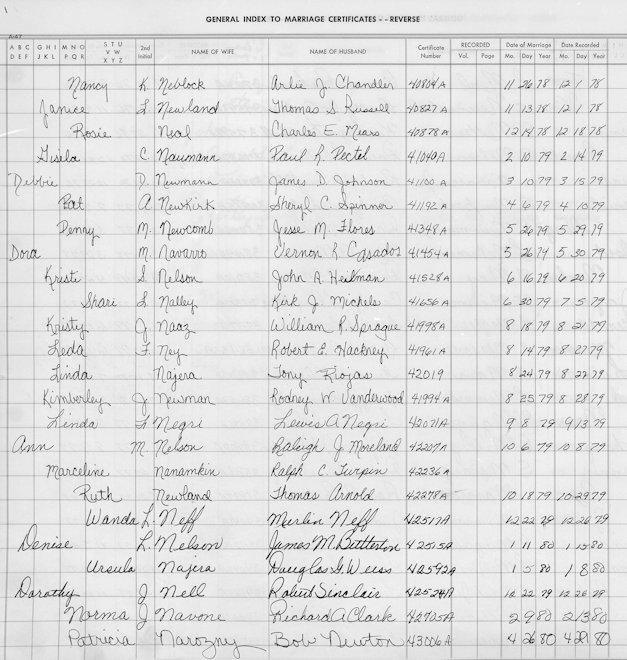 GENERAL INDEX TO MARRIAGE CERTIFICATES - - REVERSE
A-47
A B C G H I M N O S T U 2nd NAME OF WIFE NAME OF HUSBAND Certificate RECORDED Date of Marriage Date Recorded
D E F J K L P Q R V W Initial Number Vol. Page Mo. Day Year Mo. Day Year
X Y Z
Nancy K. Neblock Arlie J. Chandler 40804A 11 26 78 12 1 78
Janice L. Newland Thomas S. Russell 40827A 11 13 78 12 1 78
Rosie Neal Charles E. Mears 40878A 12 14 78 12 18 78
Gisela C. Naumann Paul R. Pectel 41040A 2 10 79 2 14 79
Debbie D. Newmann James D. Johnson 41100A 3 10 79 3 15 79
Pat A Newkirk Sheryl C. Spinner 41192A 4 6 79 4 10 79
Penny M. Newcomb Jesse M. Flores 41348A 5 26 79 5 29 79
Dora M. Navarro Vernon R. Casados 41454A 5 26 79 5 30 79
Kristi S. Nelson John A. Heilman 41528A 6 16 79 6 20 79
Shari L Nalley Kirk J. Michels 41656A 6 30 79 7 5 79
Kristy J. Naaz William R. Sprague 41998A 8 18 79 8 21 79
Leda F. Ney Robert E. Hackney 41961A 8 14 79 8 27 79
Linda Najera Tony Riojas 42019 8 24 79 8 27 79
Kimberley J. Newman Rodney W. Vanderwood 41994A 8 25 79 8 28 79
Linda L Negri Lewis A Negri 42071A 9 8 79 9 13 79
Ann M. Nelson Raleigh J. Moreland 42207A 10 6 79 10 8 79
Marceline Nanamkin Ralph C. Turpin 42236A
Ruth Newland Thomas Arnold 42278A 10 18 79 10 29 79
Wanda L. Neff Merlin Neff 42517A 12 22 79 12 26 79
Denise L. Nelson James M. Bitterton 42575A 1 11 80 1 15 80
Ursula Najera Douglas G. Weiss 42542A 1 5 80 1 8 80
Dorothy J Nell Robert Sinclair 42524A 12 22 79 12 26 79
Norma J Navone Richard A Clark 42705A 2 9 80 2 13 80
Patricia Narozny Bob Newton 43006A 4 26 80 4 29 80